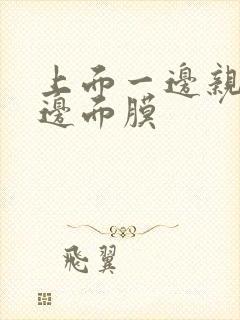 上而一邊親
邊而膜
飛翼